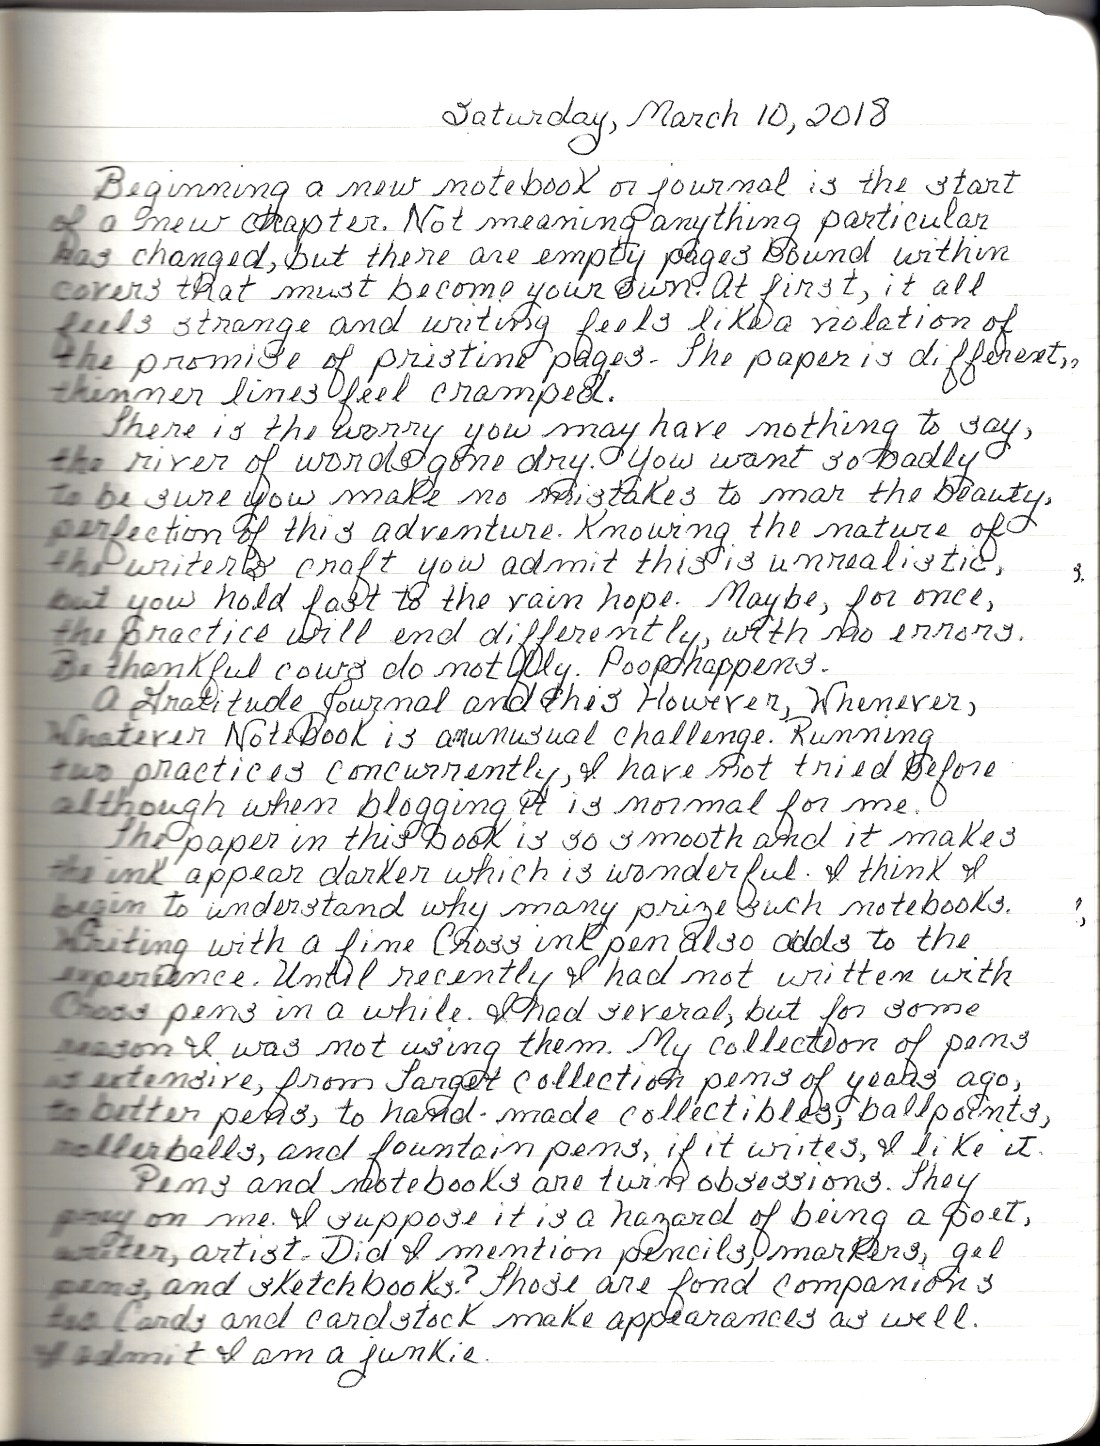 Saturday, March 10, 2018
Beginning a new notebook or journal is the start
of a new chapter. Not meaning anything particular
has changed, but there are empty pages bound within
covers that must become your own. At first, it all
feels strange and writing feels like a violation of
the promise of pristine pages. The paper is different,
thinner lines feel cramped.
There is the worry you may have nothing to say,
the river of words gone dry. You want so badly
to be sure you make no mistakes to mar the beauty,
perfection of this adventure. Knowing the nature of
the writer's craft you admit this is unrealistic,
but you hold fast to the vain hope. Maybe, for once,
the practice will end differently, with no errors.
Be thankful cows do not fly. Poop happens.
A Gratitude Journal and this However, Whenever,
Whatever NoteBook is an unusual challenge. Running
two practices concurrently, I have not tried before
although when blogging it is normal for me.
The paper in this book is so smooth and it makes
the ink appear darker which is wonderful. I think I
begin to understand why many prize such notebooks.
Writing with a fine Cross ink pen also adds to the
experience. Until recently I had not written with
Cross pens in a while. I had several, but for some
reason I was not using them. My collection of pens
is extensive, from Target collection pens of years ago,
to better pens, to hand-made collectibles, ballpoints,
rollerballs, and fountain pens, if it writes, I like it.
Pens and notebooks are twin obsessions. They
prey on me. I suppose it is a hazard of being a poet,
writer, artist. Did I mention pencils, markers, gel
pens, and sketchbooks? Those are fond companions
too. Cards and cardstock make appearances as well.
I admit I am a junkie.